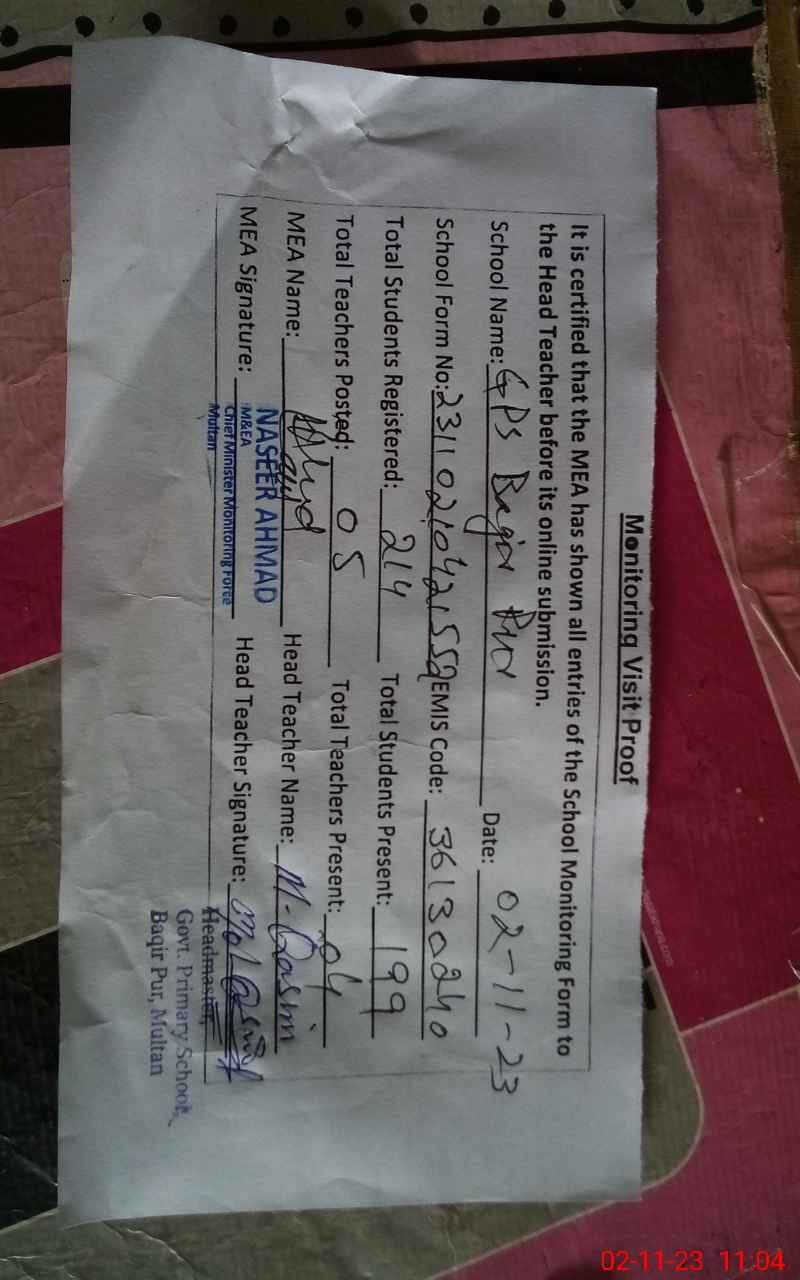 Monitoring Visit Proof
It is certified that the MEA has shown all entries of the School Monitoring Form to
the Head Teacher before its online submission.
School Name: GPS Baqir Pur Date: 02-11-23
School Form No: 23110210421559 EMIS Code: 36130240
Total Students Registered: 214 Total Students Present: 199
Total Teachers Posted: 05 Total Teachers Present: 04
MEA Name: NASEER AHMAD Head Teacher Name: M. Qasim
MEA Signature: M&EA Head Teacher Signature:
Chief Minister Monitoring Force
Multan
Headmaster,
Govt. Primary School,
Baqir Pur, Multan
02-11-23 11:04